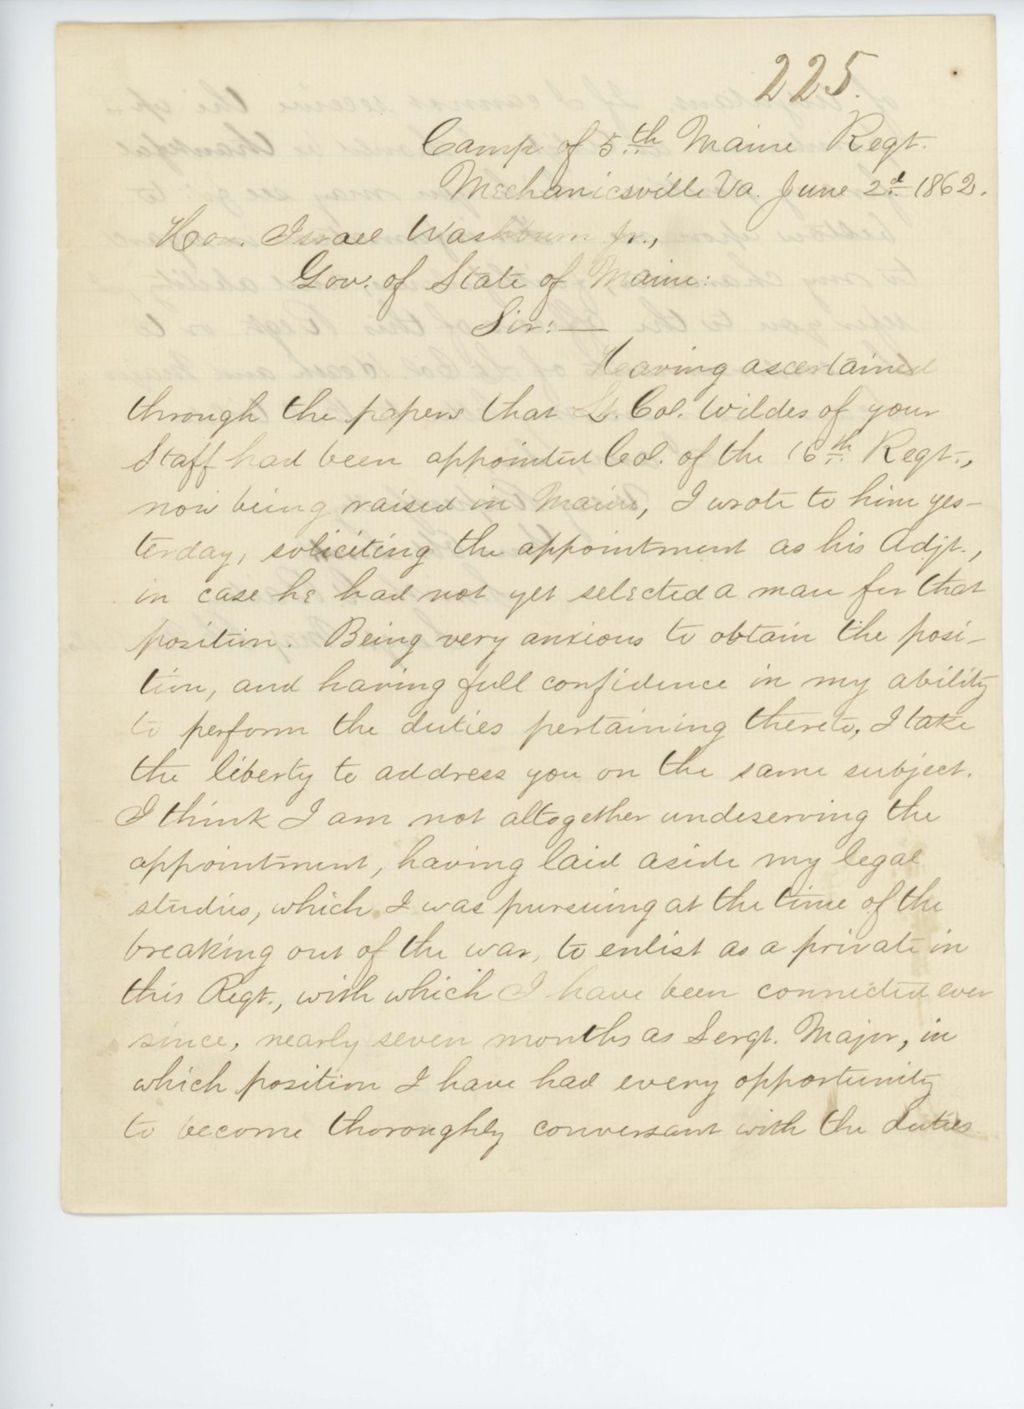 225.
Camp of 5th Maine Regt.
Mechanicsville Va. June 2d 1862.
Hon. Israel Washburn Jr.,
Gov. of State of Maine:
Sir:—
Having ascertained
through the papers that Lt. Col. Wildes of your
Staff had been appointed Col. of the 16th Regt.,
now being raised in Maine, I wrote to him yes-
terday, soliciting the appointment as his Adjt.,
in case he had not yet selected a man for that
position. Being very anxious to obtain the posi-
tion, and having full confidence in my ability
to perform the duties pertaining thereto, I take
the liberty to address you on the same subject.
I think I am not altogether undeserving the
appointment, having laid aside my legal
studies, which I was pursuing at the time of the
breaking out of the war, to enlist as a private in
this Regt., with which I have been connected ever
since, nearly seven months as Sergt. Major, in
which position I have had every opportunity
to become thoroughly conversant with the duties